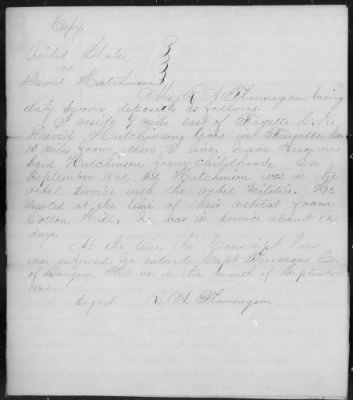 Copy
United States
vs
David Hutchinson
R. A. Flannagan being
duly sworn deposeth as follows.
I reside 9 miles east of Fayette C. H.
David Hutchinson lives in Fayette Co.
10 miles from where I live, have known
said Hutchinson from childhood. In
September 1861, sd Hutchinson was in the
rebel service with the rebel militia. He
deserted at the time of their retreat from
Cotton Hill. He was in service about 12
days.
At the time the Conscript law
was enforced he entered Capt Thurmans Co.
of Rangers. This was in the month of September
Signed R. A. Flannagan